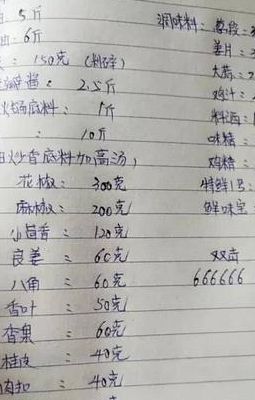 5斤
6斤
150克 (粉碎)
瓣酱: 2.5斤
火锅底料: 1斤
: 10斤
炒香底料加高汤)
花椒: 300克
麻椒: 200克
小茴香: 120克
良姜: 60克
八角: 60克
香叶: 50克
香果: 60克
桂皮: 40克
肉扣: 40克
调味料: 葱段:
姜片:
大蒜:
鸡汁:
料酒:
味精:
鸡精:
特鲜1号:
鲜味宝:
双击
666666